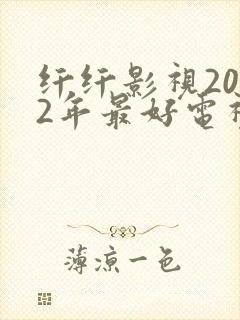 纤纤影視20
2年最好電視
薄涼一色